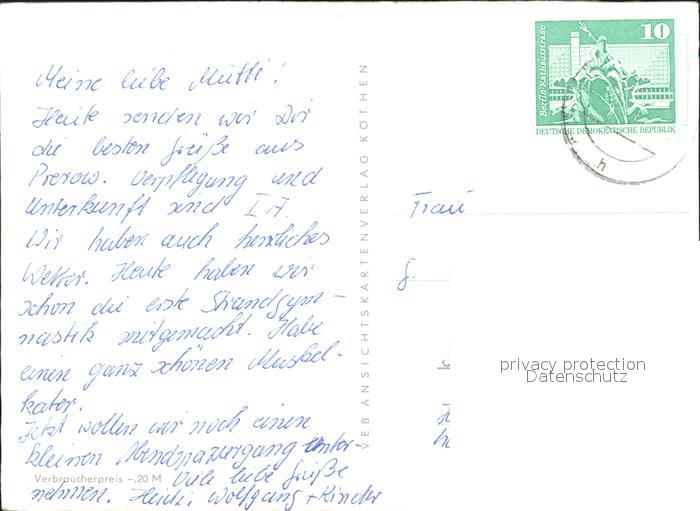 Meine liebe Mutti!
Heute senden wir Dir
die besten Grüße aus
Prerow. Verpflegung und
Unterkunft sind I A.
Wir haben auch herrliches
Wetter. Heute haben wir
schon die erste Strandgym-
nastik mitgemacht. Habe
einen ganz schönen Muskel-
kater.
Jetzt wollen wir noch einen
kleinen Abendspaziergang unter-
nehmen. Viele liebe Grüße
Heidi, Wolfgang + Kinder
Verbraucherpreis -,20 M
VEB ANSICHTSKARTENVERLAG KÖTHEN
Berlin, Rathausstraße
10
DEUTSCHE DEMOKRATISCHE REPUBLIK
Frau
privacy protection
Datenschutz